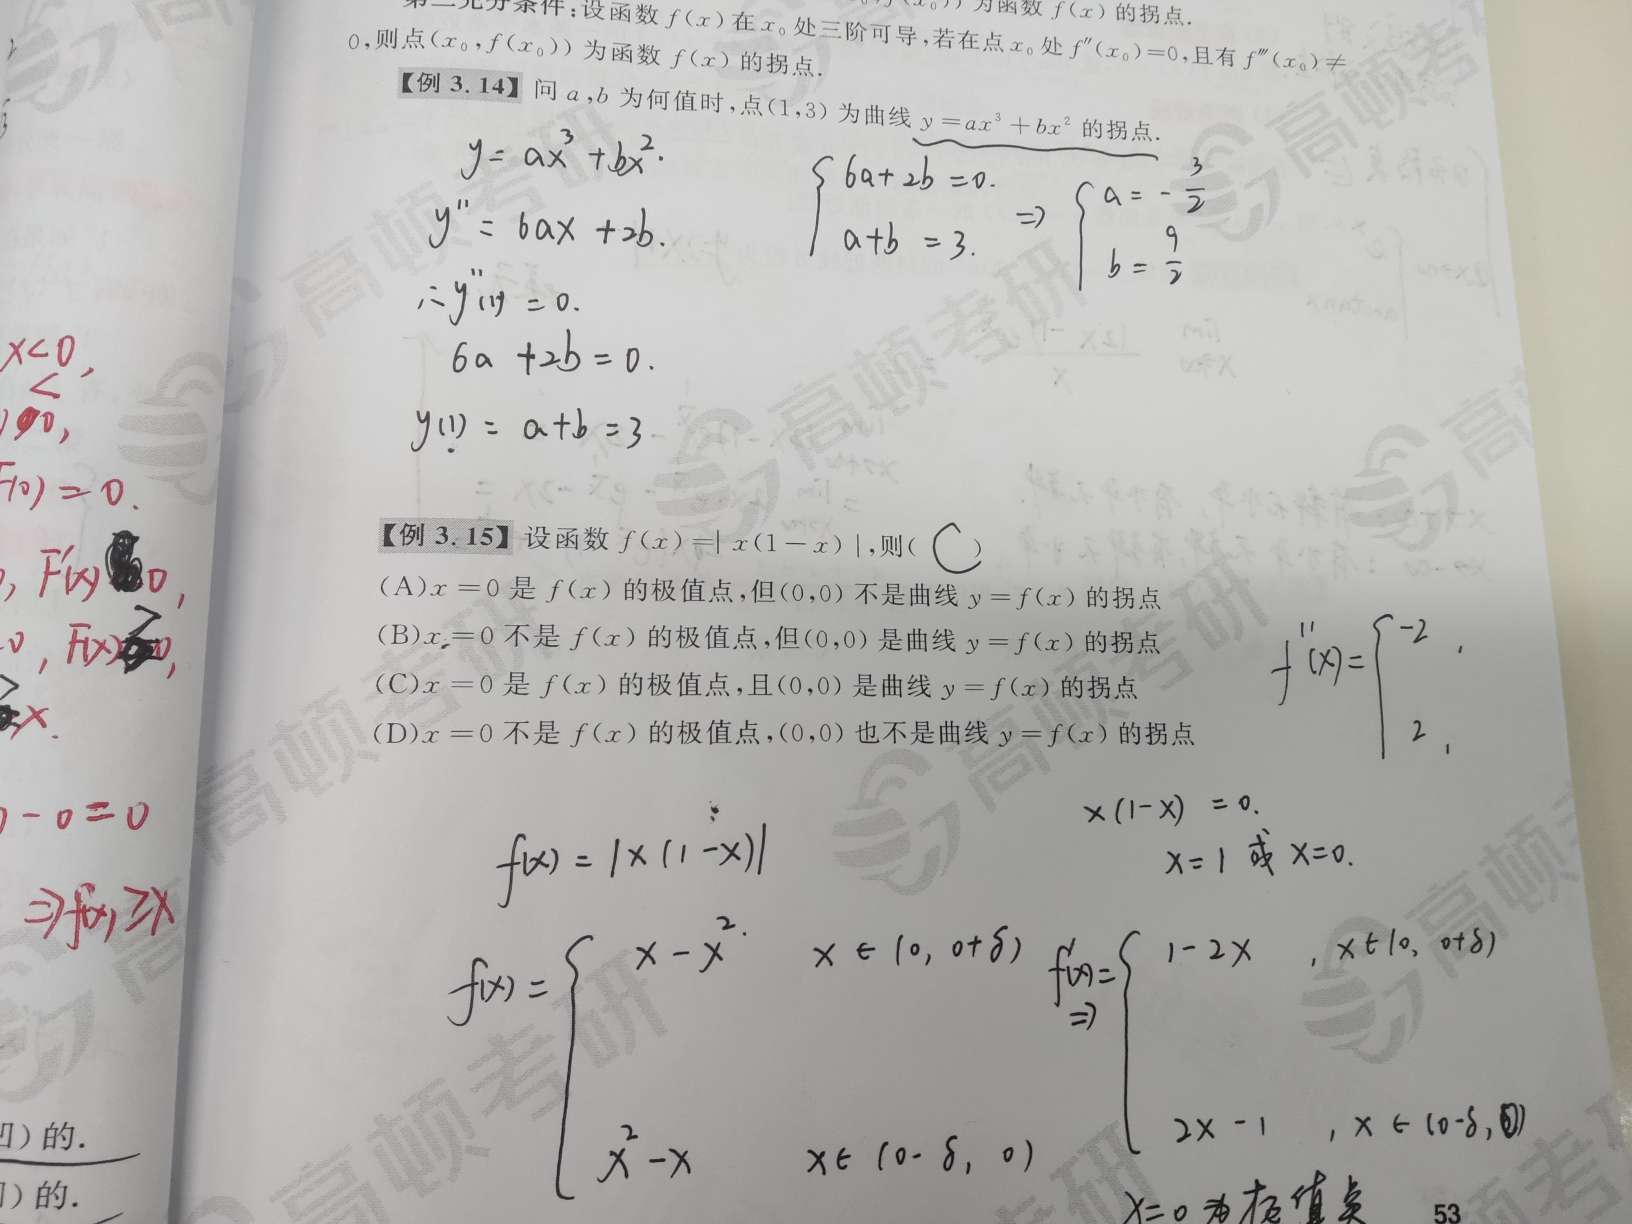 第二充分条件:设函数 f(x) 在 x₀ 处三阶可导,若在点 x₀ 处 f″(x₀)=0,且有 f‴(x₀)≠
为函数 f(x) 的拐点.
0,则点(x₀,f(x₀)) 为函数 f(x) 的拐点.
【例 3.14】 问 a,b 为何值时,点(1,3) 为曲线 y=ax³+bx² 的拐点.
y = ax³ + bx².
y″ = 6ax + 2b.
∴ y″(1) = 0.
6a + 2b = 0.
y(1) = a+b = 3
{ 6a+2b = 0.
a+b = 3.
⇒ { a = -3/2
b = 9/2
【例 3.15】 设函数 f(x)=| x(1-x) |,则( C )
(A)x=0 是 f(x) 的极值点,但(0,0) 不是曲线 y=f(x) 的拐点
(B)x=0 不是 f(x) 的极值点,但(0,0) 是曲线 y=f(x) 的拐点
(C)x=0 是 f(x) 的极值点,且(0,0) 是曲线 y=f(x) 的拐点
(D)x=0 不是 f(x) 的极值点,(0,0) 也不是曲线 y=f(x) 的拐点
f″(x) = { -2 ,
2 ,
x(1-x) = 0.
x=1 或 x=0.
f(x) = |x(1-x)|
f(x) = { x-x². x∈(0, 0+δ)
x²-x x∈(0-δ, 0)
⇒ f′(x) = { 1-2x , x∈(0, 0+δ)
2x-1 , x∈(0-δ, 0)
x=0 为极值点
53
x<0,
<
F(0) = 0.
F′(x) 0,
F(x) 0,
x.
0-0=0
⇒f(x) ≥x
凹) 的.
) 的.
高顿考研